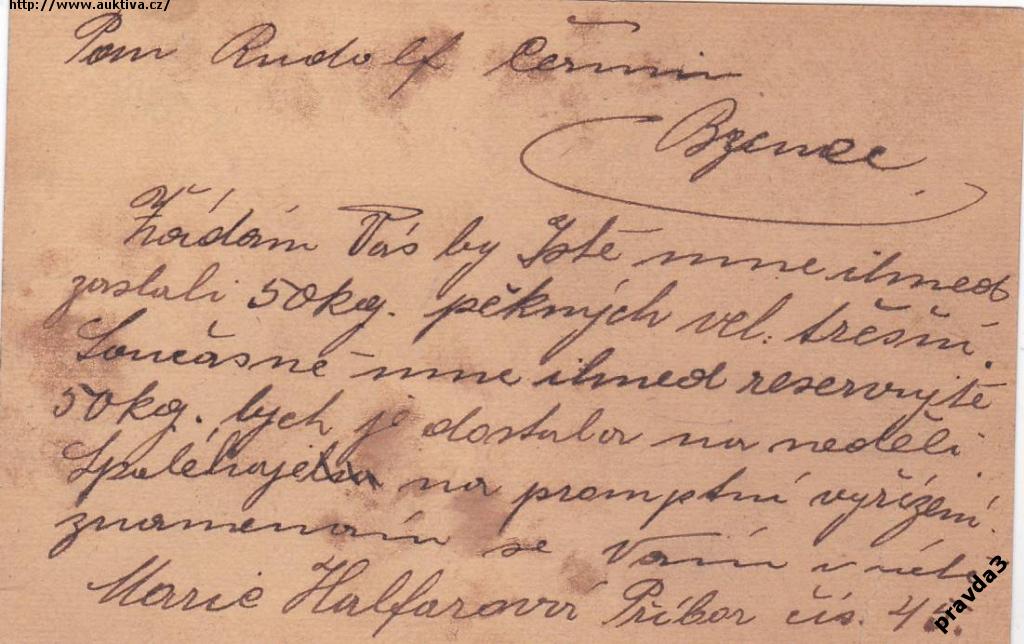 http://www.auktiva.cz/
Pan Rudolf Čermin
Bzenec.
Žádám Vás by Jstě mne ihned
zaslali 50 kg. pěkných vel. třešní.
Současně mne ihned reservujtě
50 kg. bych je dostala na neděli.
Spoléhaje na promptní vyřízení.
znamenám se Vám v úctě
Marie Halfarová Příbor čís. 4
pravda3